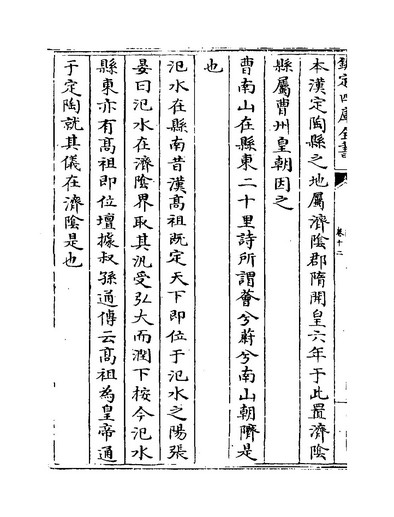 欽定四庫全書
卷十二
本漢定陶縣之地屬濟陰郡隋開皇六年于此置濟陰
縣屬曹州皇朝因之
曹南山在縣東二十里詩所謂薈兮蔚兮南山朝隮是
也
氾水在縣南昔漢髙祖既定天下即位于氾水之陽張
晏曰氾水在濟陰界取其汎受弘大而潤下桉今氾水
縣東亦有髙祖即位壇據叔孫通傳云髙祖為皇帝通
于定陶就其儀在濟陰是也